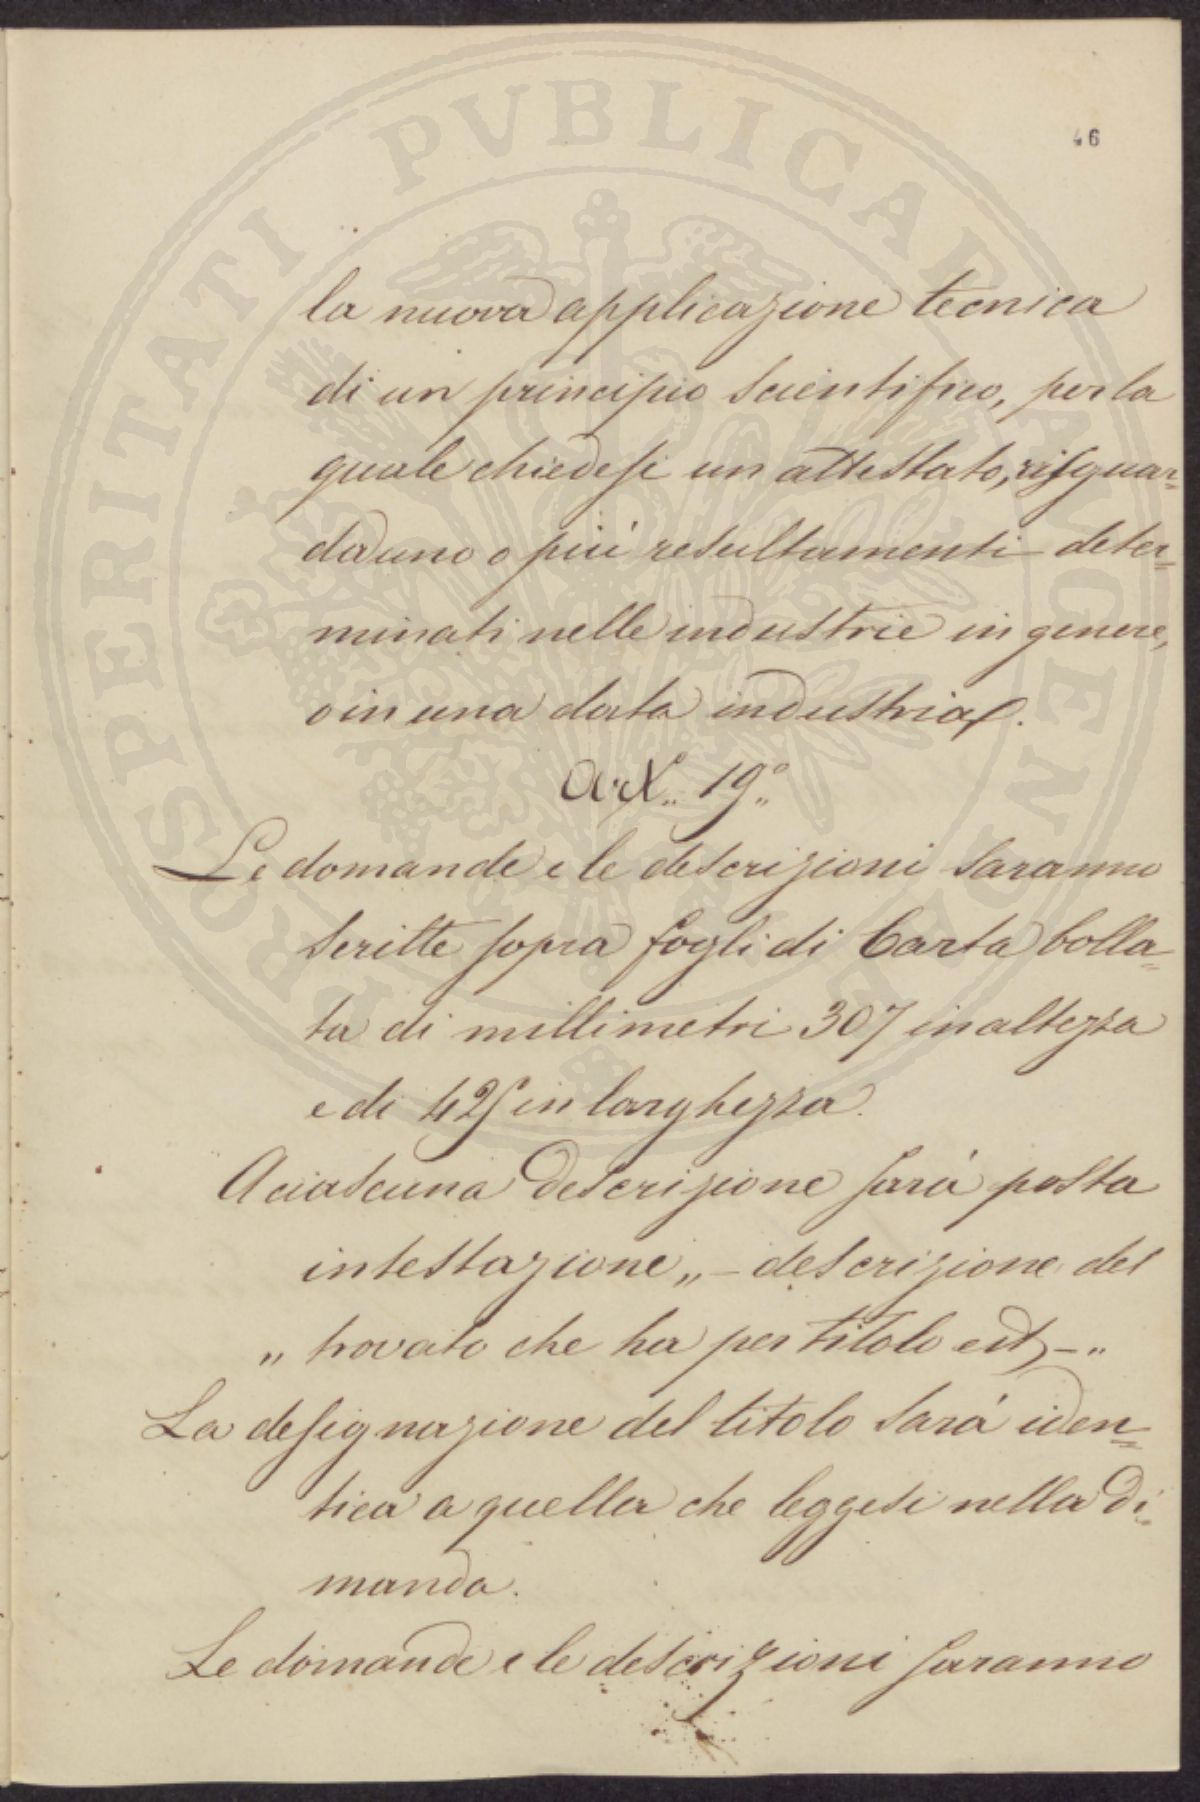 46
PROSPERITATI PVBLICAE AVGENDAE
la nuova applicazione tecnica
di un principio scientifico, per la
quale chiedesi un attestato, risguar=
da uno o più resultamenti deter=
minati nelle industrie in genere,
o in una data industria.
Art.. 19°..
Le domande e le descrizioni saranno
scritte sopra fogli di Carta bolla=
ta di millimetri 307 in altezza
e di 425 in larghezza.
A ciascuna descrizione sarà posta
intestazione „ - descrizione del
„ trovato che ha per titolo est) - "
La designazione del titolo sarà iden=
tica a quella che leggesi nella di=
manda.
Le domande e le descrizioni saranno